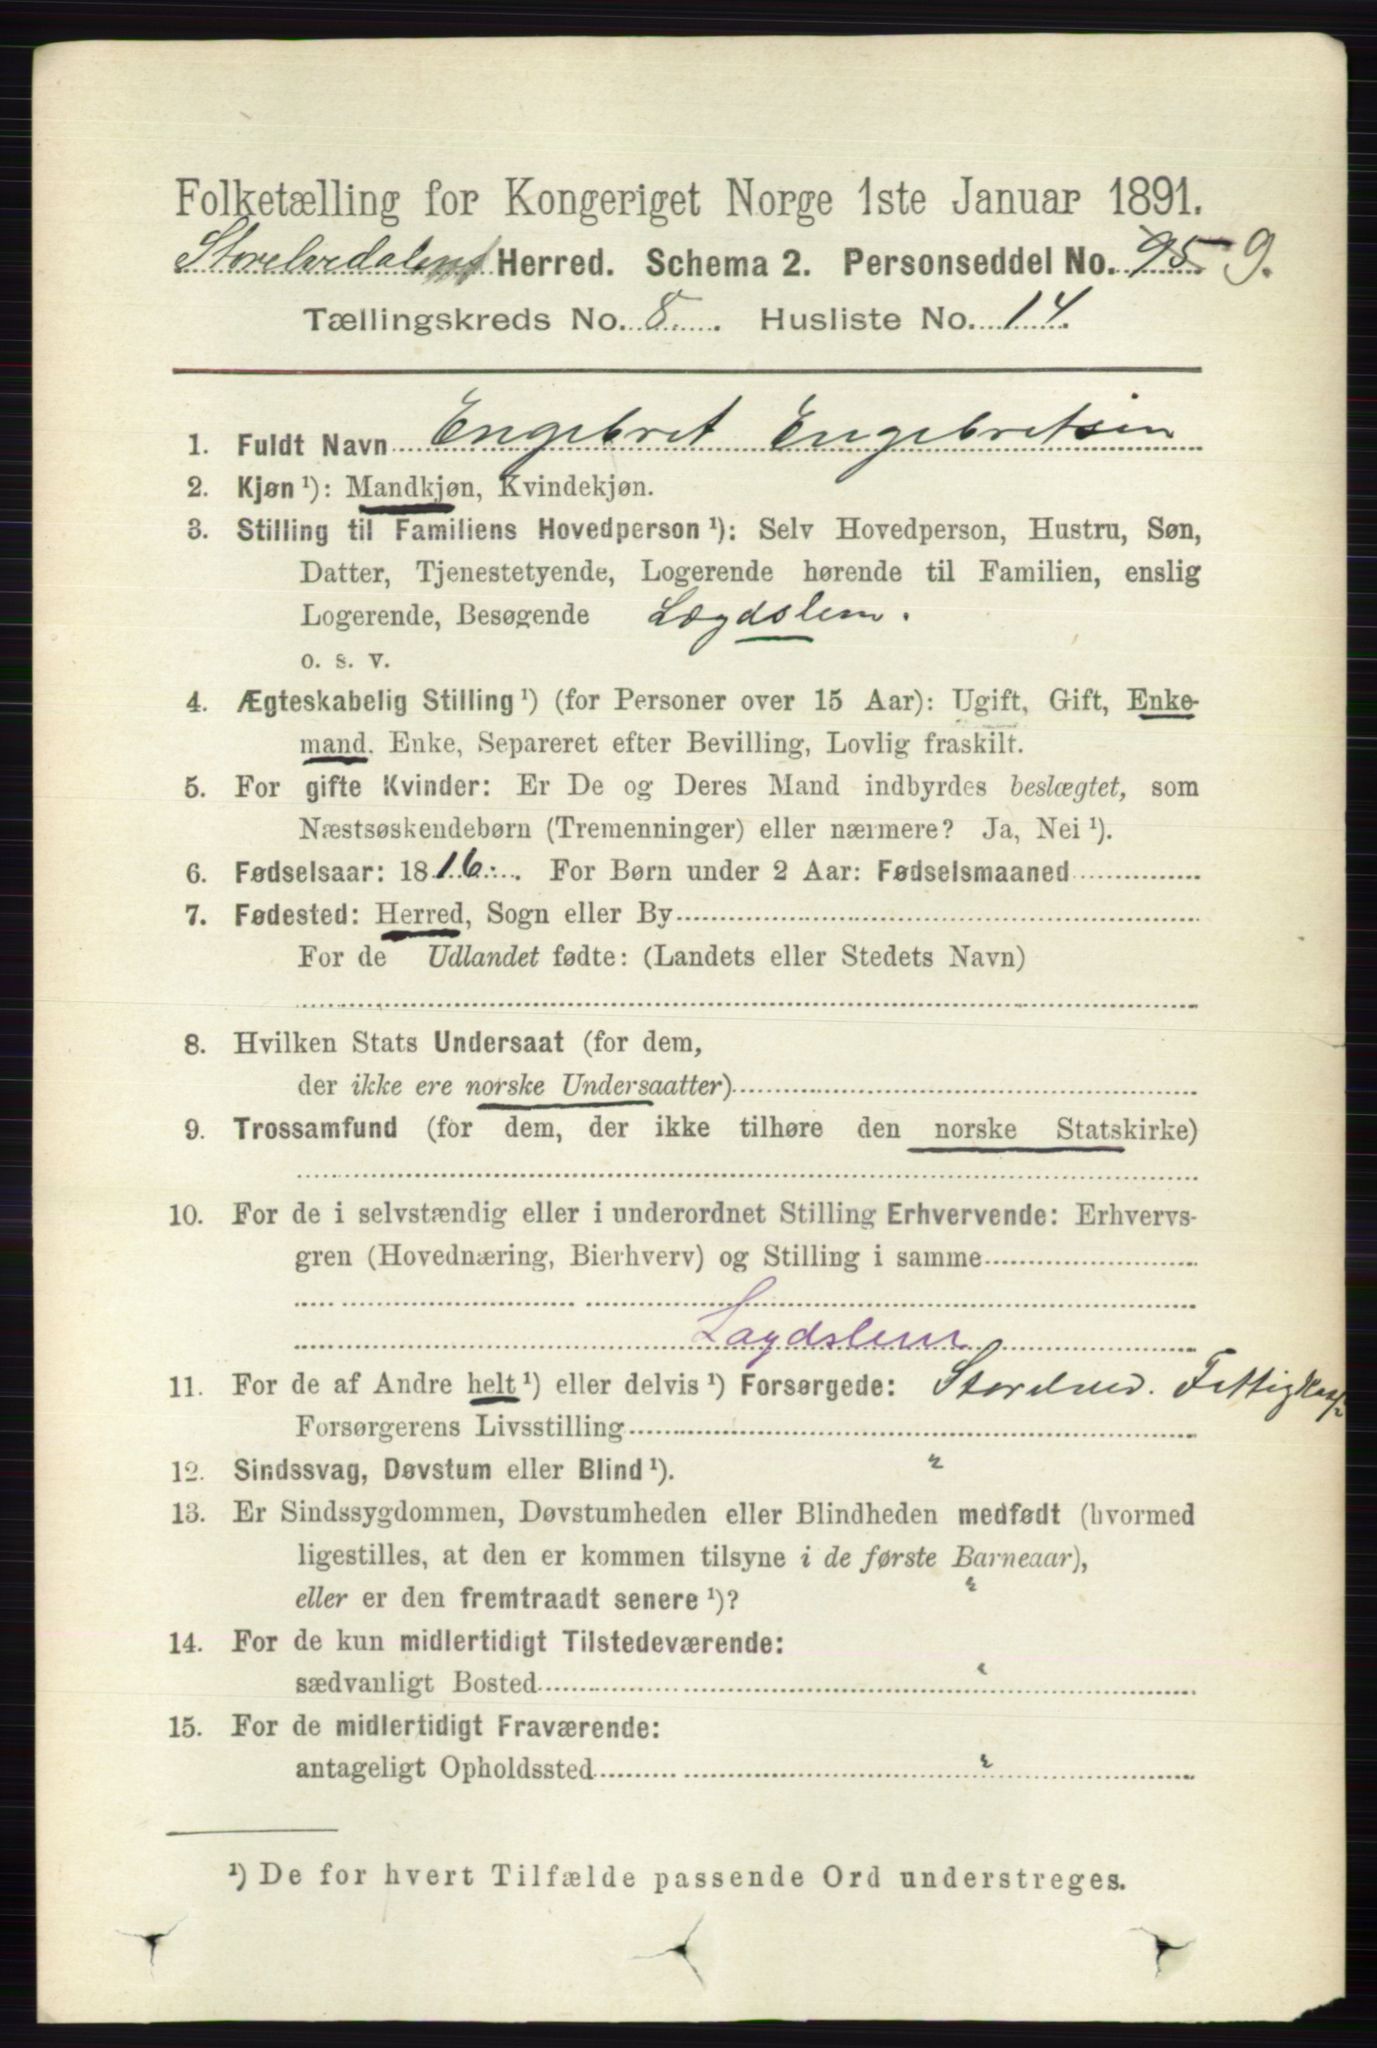 Folketælling for Kongeriget Norge 1ste Januar 1891.
Storelvedalens Herred. Schema 2. Personseddel No. 95 9.
Tællingskreds No. 8. Husliste No. 14.
1. Fuldt Navn Engebret Engebretsen
2. Kjøn ¹): Mandkjøn, Kvindekjøn.
3. Stilling til Familiens Hovedperson ¹): Selv Hovedperson, Hustru, Søn,
Datter, Tjenestetyende, Logerende hørende til Familien, enslig
Logerende, Besøgende Lægdslem.
o. s. v.
4. Ægteskabelig Stilling ¹) (for Personer over 15 Aar): Ugift, Gift, Enke-
mand, Enke, Separeret efter Bevilling, Lovlig fraskilt.
5. For gifte Kvinder: Er De og Deres Mand indbyrdes beslægtet, som
Næstsøskendebørn (Tremenninger) eller nærmere? Ja, Nei ¹).
6. Fødselsaar: 1816. For Børn under 2 Aar: Fødselsmaaned
7. Fødested: Herred, Sogn eller By
For de Udlandet fødte: (Landets eller Stedets Navn)
8. Hvilken Stats Undersaat (for dem,
der ikke ere norske Undersaatter)
9. Trossamfund (for dem, der ikke tilhøre den norske Statskirke)
10. For de i selvstændig eller i underordnet Stilling Erhvervende: Erhvervs-
gren (Hovednæring, Bierhverv) og Stilling i samme
Lagdslem
11. For de af Andre helt ¹) eller delvis ¹) Forsørgede:
Forsørgerens Livsstilling
12. Sindssvag, Døvstum eller Blind ¹).
13. Er Sindssygdommen, Døvstumheden eller Blindheden medfødt (hvormed
ligestilles, at den er kommen tilsyne i de første Barneaar),
eller er den fremtraadt senere ¹)?
14. For de kun midlertidigt Tilstedeværende:
sædvanligt Bosted
15. For de midlertidigt Fraværende:
antageligt Opholdssted
¹) De for hvert Tilfælde passende Ord understreges.